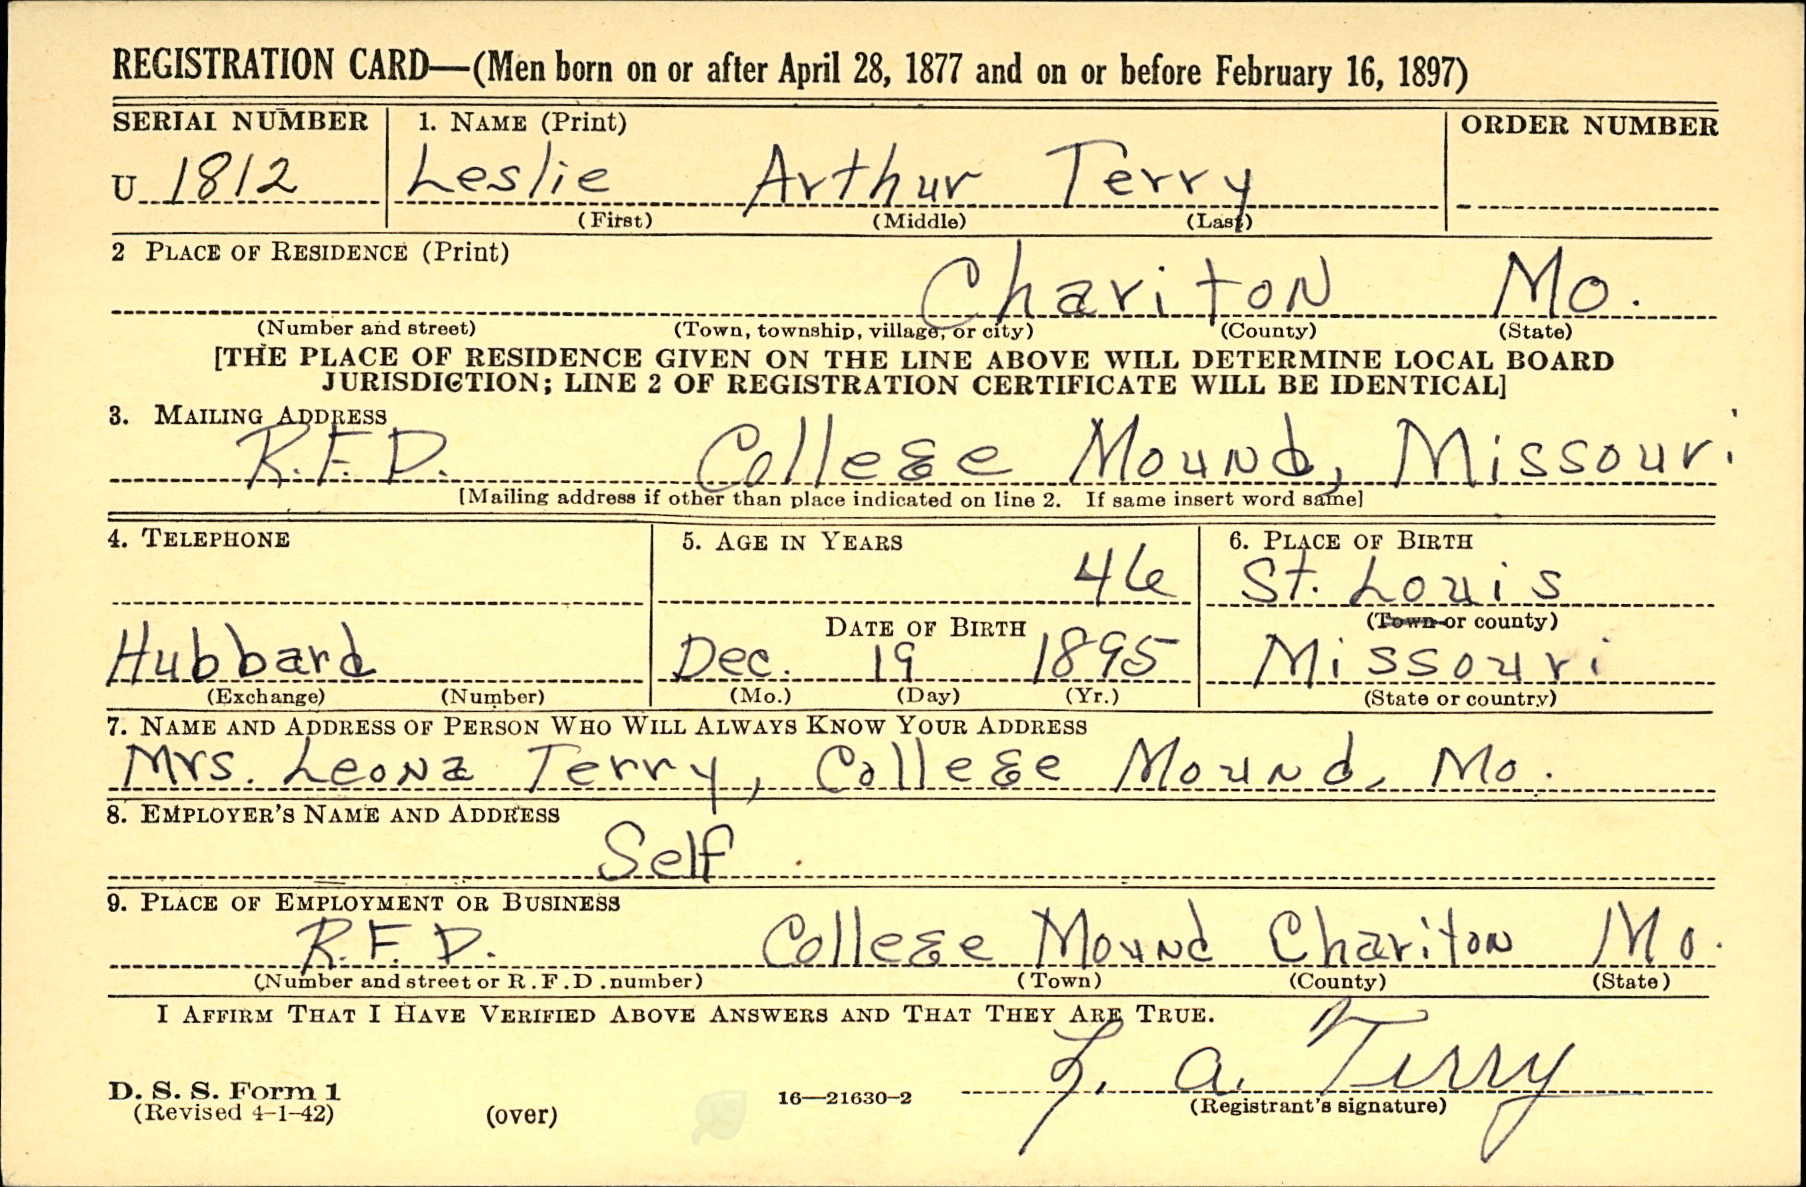 REGISTRATION CARD—(Men born on or after April 28, 1877 and on or before February 16, 1897)
SERIAL NUMBER 1. NAME (Print) ORDER NUMBER
U 1812 Leslie Arthur Terry
(First) (Middle) (Last)
2 PLACE OF RESIDENCE (Print)
Chariton Mo.
(Number and street) (Town, township, village, or city) (County) (State)
[THE PLACE OF RESIDENCE GIVEN ON THE LINE ABOVE WILL DETERMINE LOCAL BOARD
JURISDICTION; LINE 2 OF REGISTRATION CERTIFICATE WILL BE IDENTICAL]
3. MAILING ADDRESS
R.F.D. College Mound, Missouri
[Mailing address if other than place indicated on line 2. If same insert word same]
4. TELEPHONE 5. AGE IN YEARS 6. PLACE OF BIRTH
46 St. Louis
DATE OF BIRTH (Town or county)
Hubbard Dec. 19 1895 Missouri
(Exchange) (Number) (Mo.) (Day) (Yr.) (State or country)
7. NAME AND ADDRESS OF PERSON WHO WILL ALWAYS KNOW YOUR ADDRESS
Mrs. Leona Terry, College Mound, Mo.
8. EMPLOYER'S NAME AND ADDRESS
Self
9. PLACE OF EMPLOYMENT OR BUSINESS
R.F.D. College Mound Chariton Mo.
(Number and street or R.F.D. number) (Town) (County) (State)
I AFFIRM THAT I HAVE VERIFIED ABOVE ANSWERS AND THAT THEY ARE TRUE.
L. A. Terry
D. S. S. Form 1
(Revised 4-1-42) (over) 16—21630-2 (Registrant's signature)